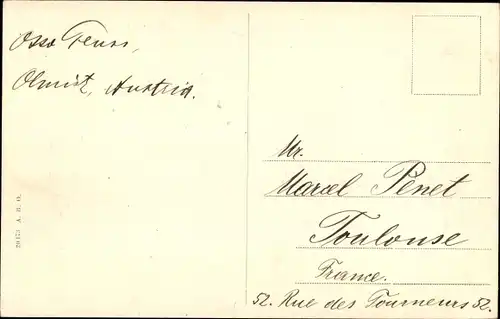 Olmütz, Austria.
Mr.
Marcel Penet
Toulouse
France.
52. Rue des Tourneurs 52.